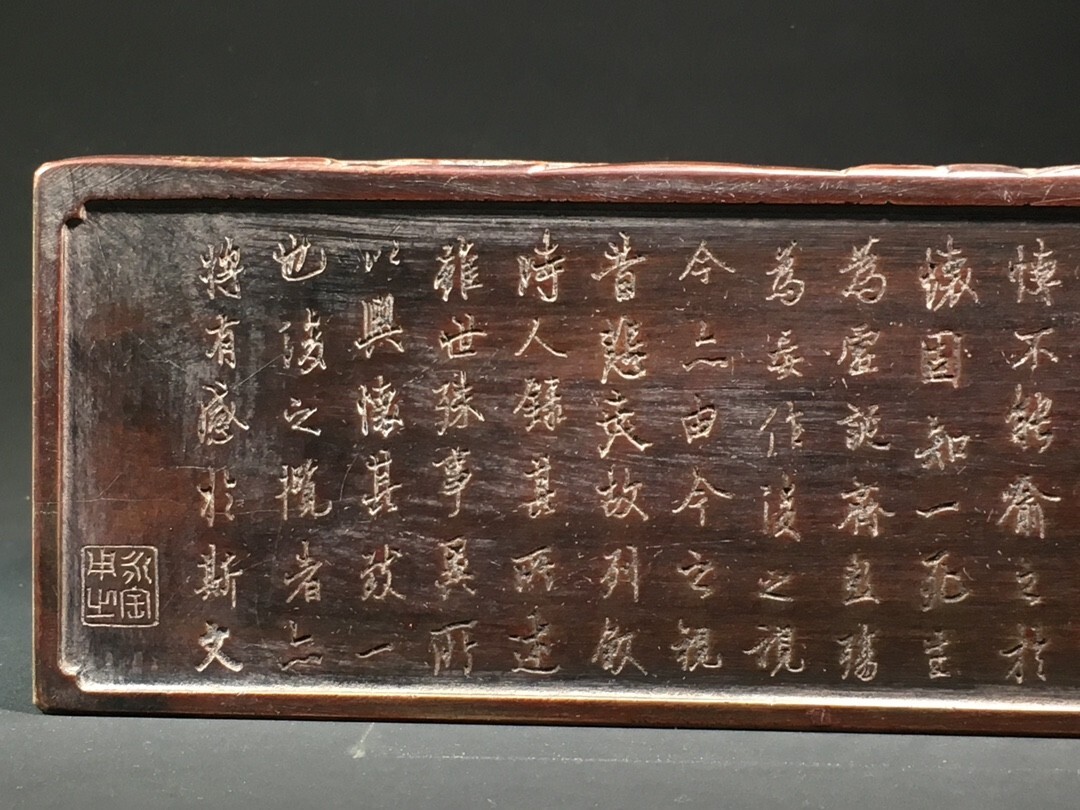 悼不能喻之於
懷固知一死生
為虛誕齊彭殤
為妄作後之視
今亦由今之視
昔悲夫故列敘
時人錄其所述
雖世殊事異所
以興懷其致一
也後之攬者亦
將有感於斯文